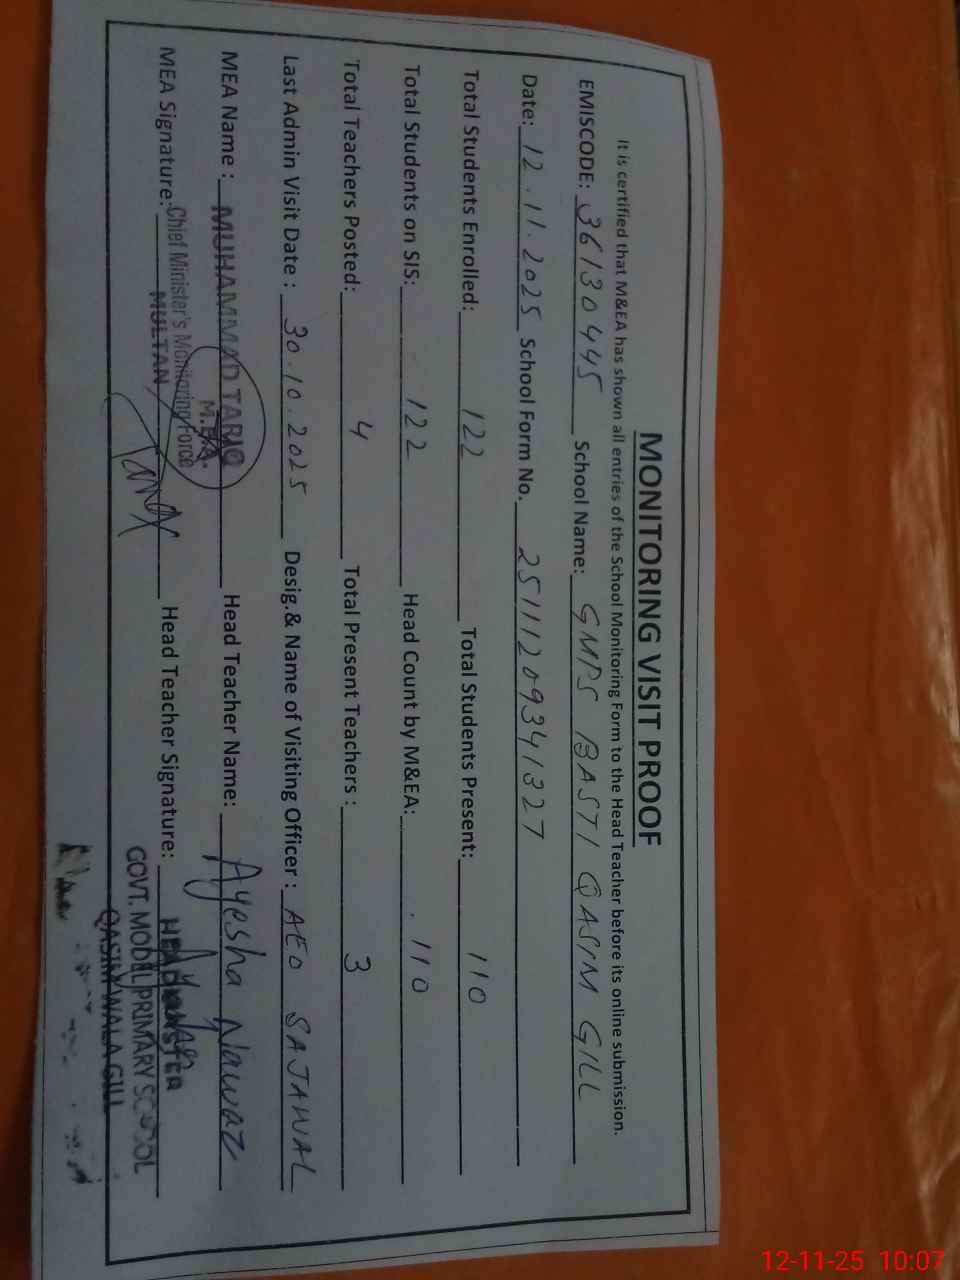 MONITORING VISIT PROOF
It is certified that M&EA has shown all entries of the School Monitoring Form to the Head Teacher before its online submission.
EMISCODE: 36130445 School Name: GMPS BASTI QASIM GILL
Date: 12.11.2025 School Form No. 25111209341327
Total Students Enrolled: 122 Total Students Present: 110
Total Students on SIS: 122 Head Count by M&EA: 110
Total Teachers Posted: 4 Total Present Teachers : 3
Last Admin Visit Date : 30.10.2025 Desig.& Name of Visiting Officer : AEO SAJAWAL
MEA Name : MUHAMMAD TARIQ Head Teacher Name: Ayesha Nawaz
M.E.A.
Chief Minister's Monitoring Force
MEA Signature: MULTAN Head Teacher Signature:
GOVT. MODEL PRIMARY SCHOOL
QASIM WALA GILL
12-11-25 10:07